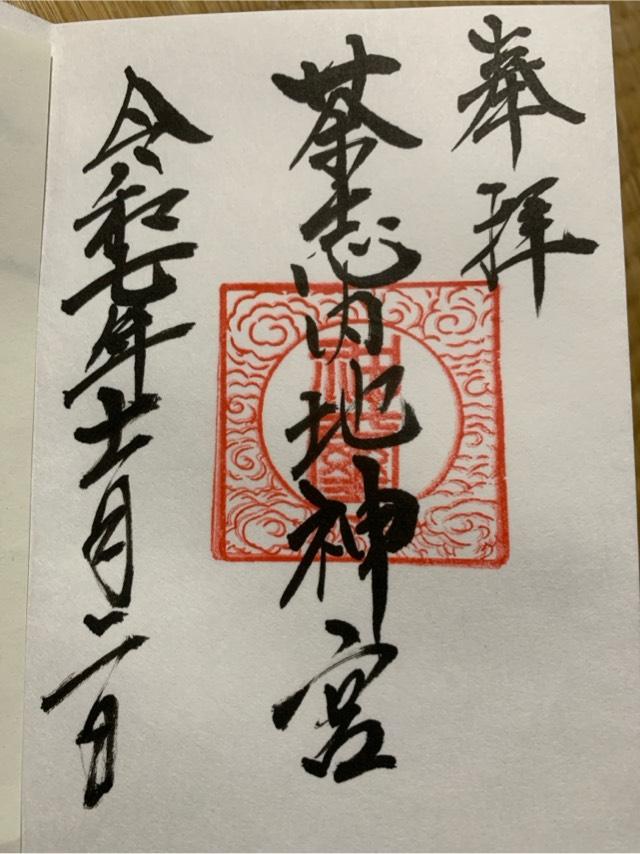 奉拝
茶志内地神宮
令和七年十一月二日